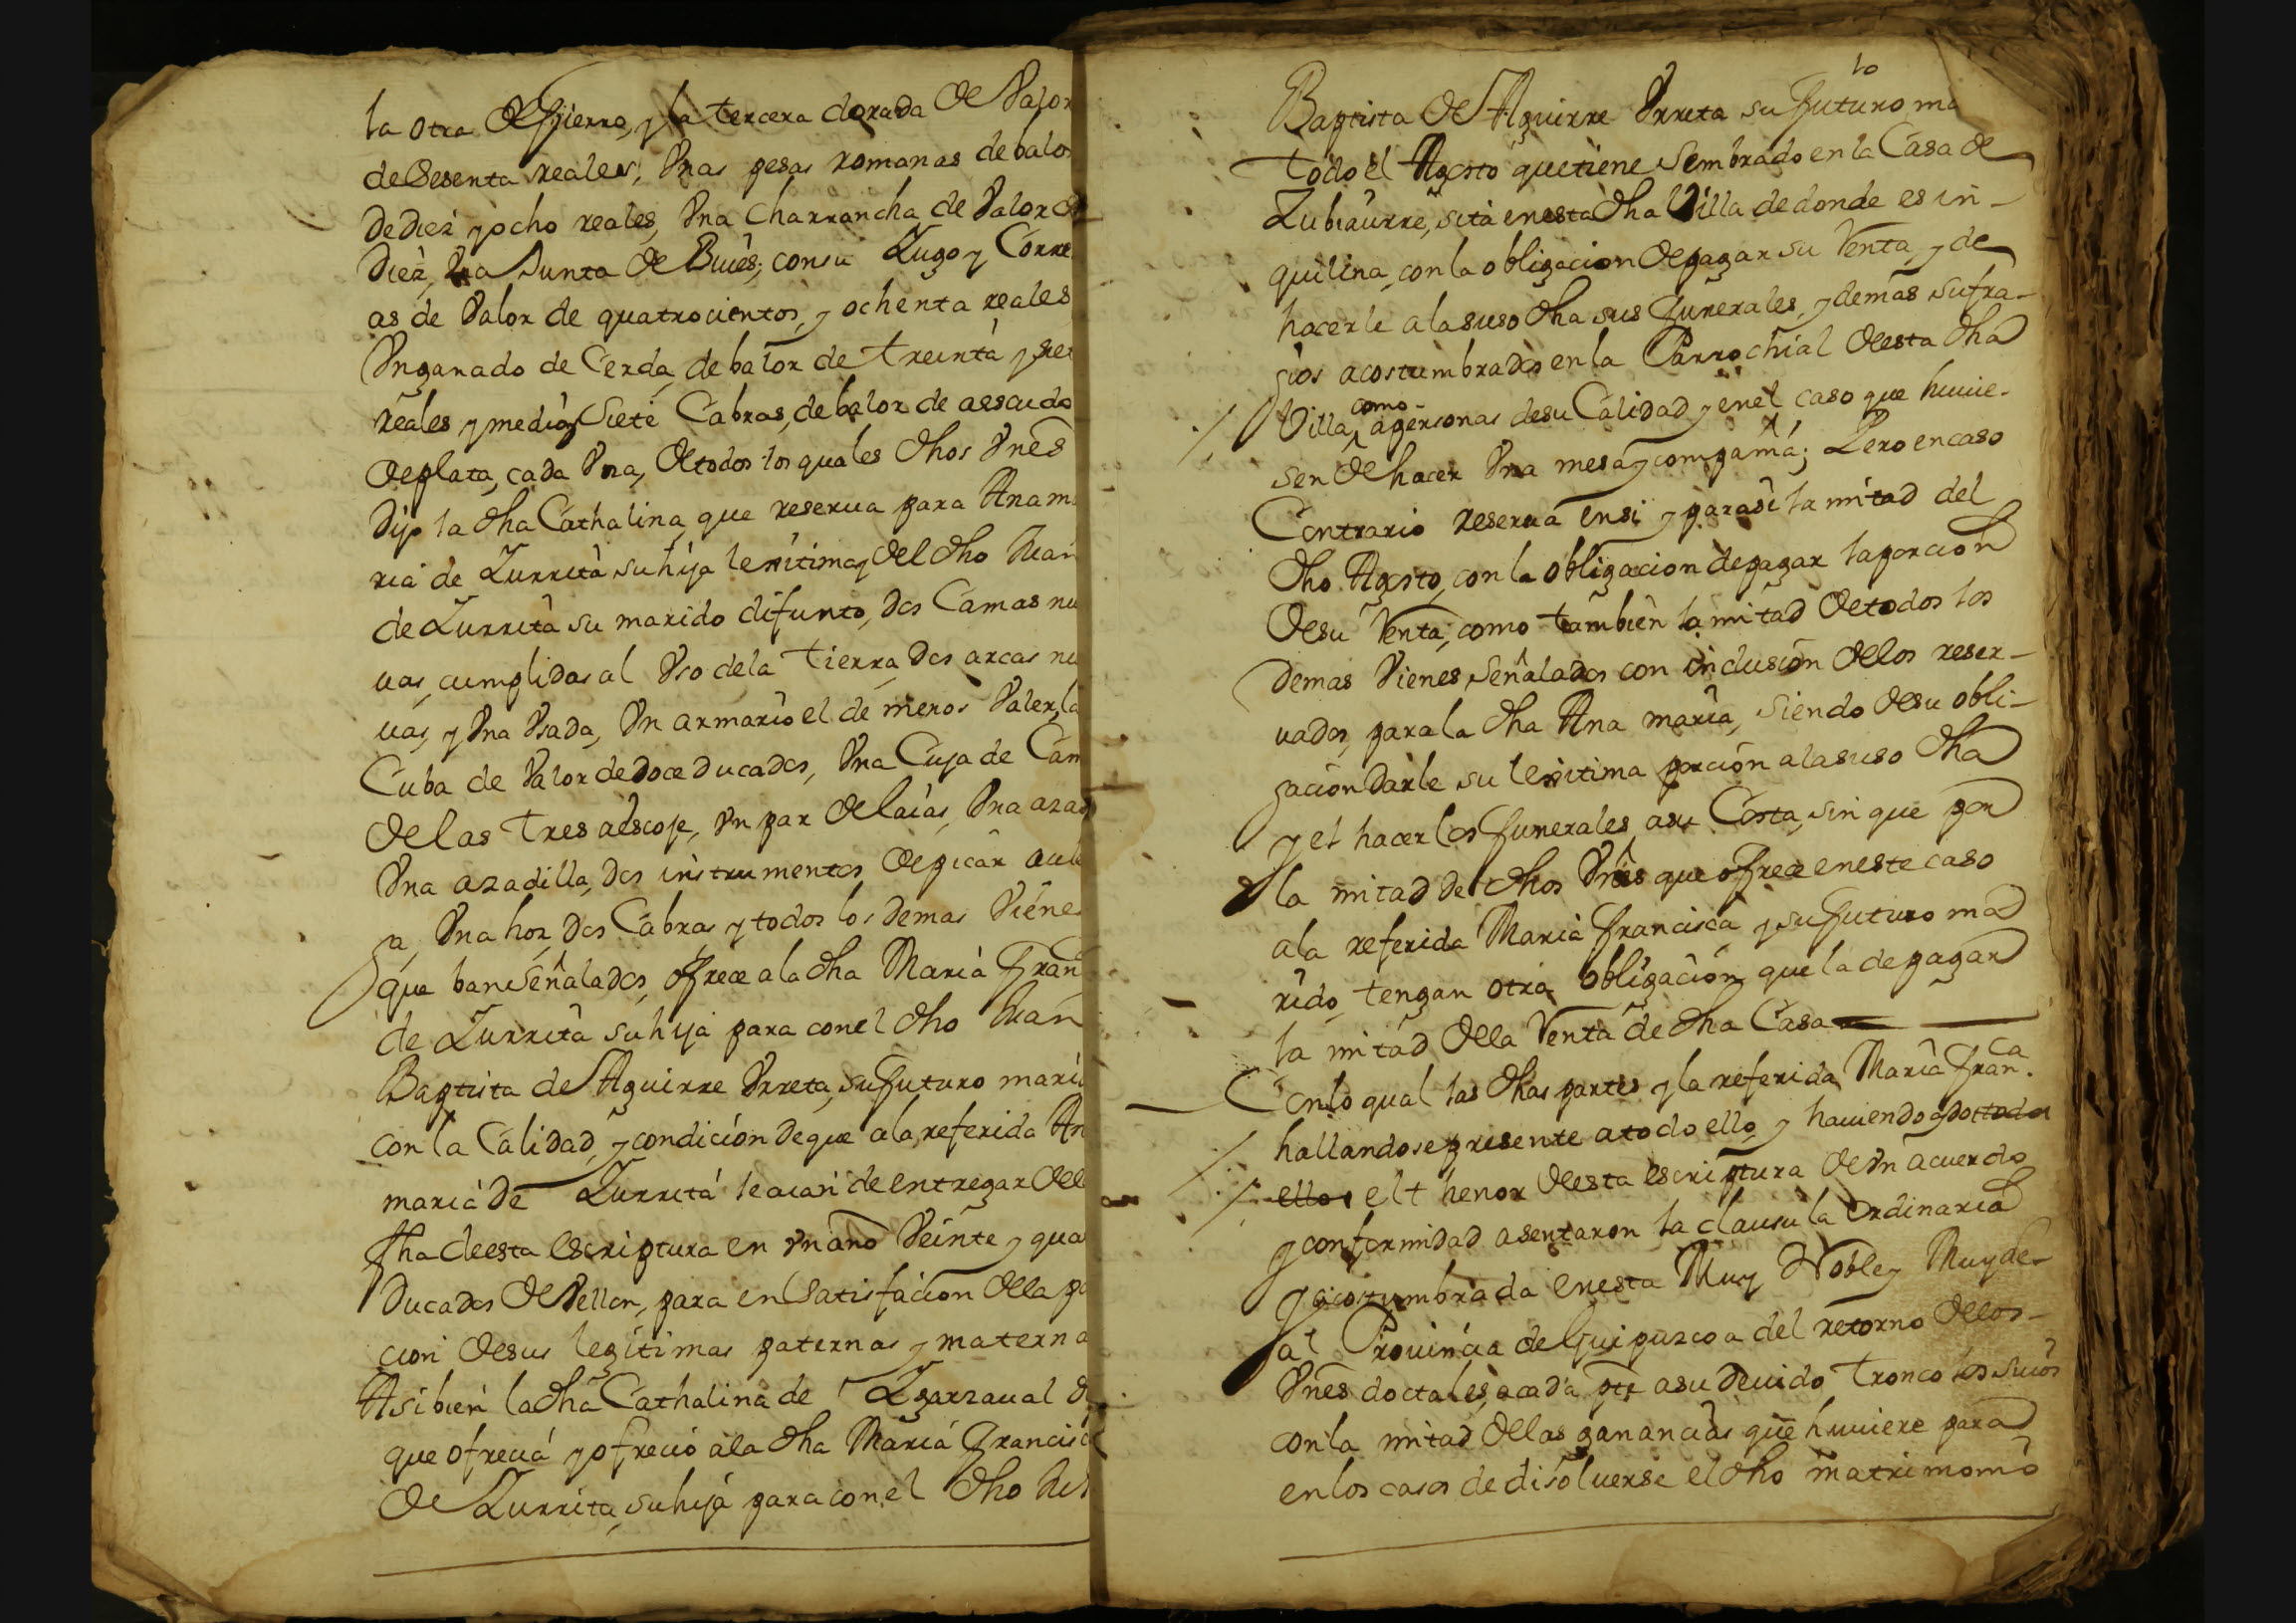 la otra de fierro, y la tercera dorada de Valor
de Sesenta reales; Vnas pesas romanas de balor
de Diez y ocho reales, Vna Charrancha de Valor de
Diez, Vna Junta de Bues, con su Yugo y Corre
as de Valor de quatrocientos, y ochenta reales
Vn ganado de Cerda, de balor de treinta y
reales y medio, Siete Cabras, de balor de a escudo
de plata, cada Vna, de todos los quales dhos Vnes
Dijo la dha Cathalina, que reserua para Ana m
ria de Zurrita su hija lexitima, y del dho Juan
de Zurrita su marido difunto, dos Camas nu
uas, cumplidas al Vso de la tierra, dos arcas nu
uas, y Vna Vsada, Vn armario el de menos Valer, la
Cuba de Valor de doce ducados, Vna Cuja de Cam
de las tres a escoje, Vn par de laias, Vna azad
Vna azadilla, dos instrumentos de picar
a, Vna hoz, dos Cabras, y todos los demas Vienes
que ban señalados, ofrece a la dha Maria Fran
de Zurrita su hija para con el dho Juan
Baptista de Aguirre Vrreta, su futuro mari
con la Calidad, y condicion de que a la referida An
maria de Zurrita le aian de entregar de l
fha de esta escriptura en Vn año Veinte y qua
Ducados de Vellon, para en Satisfacion de la po
cion de sus legitimas paternas y materna
Asi bien la dha Cathalina de Lgarzaual d
que ofrecia y ofrecio a la dha Maria Francisc
de Zurrita, su hija para con el dho
to
Baptista de Aguirre Vrreta su futuro ma
todo el Agosto que tiene Sembrado en la Casa de
Zubiaurre, sita en esta dha Villa de donde es in-
quilina, con la obligacion de pagar su Renta, y de
hacerle a la suso dha sus funerales, y demas sufra-
gios acostumbrados en la Parrochial de esta dha
como
Villa, a personas de su Calidad, y en el caso que huuie-
sen de hacer Vna mesa y compañia; Pero en caso
Contrario reserua en si y para si la mitad del
dho Agosto, con la obligacion de pagar la porcion
de su Renta, como tambien la mitad de todos los
demas Vienes señalados con inclusion de los reser-
uados, para la dha Ana maria, siendo de su obli-
gacion darle su lexitima porcion a la suso dha
y el hacer los funerales, a su Costa, sin que por
la mitad de dhos Vnes que ofrece en este caso
a la referida Maria Francisca y su futuro ma
rido, tengan otra obligacion, que la de pagar
la mitad de la Renta de dha Casa
Con lo qual las dhas partes, y la referida Maria Fran.ca
hallandose presente a todo ello, y hauiendo oydo todo
ello el thenor de esta escriptura de Vn acuerdo
y conformidad asentaron la clausula ordinaria
y acostumbrada en esta Muy Noble y Muy Le-
al Prouincia de Guipuzcoa del retorno de los
Vnes doctales, a cada pte a su deuido tronco los suios
con la mitad de las ganancias que huuiere para
en los casos de disoluerse el dho matrimonio